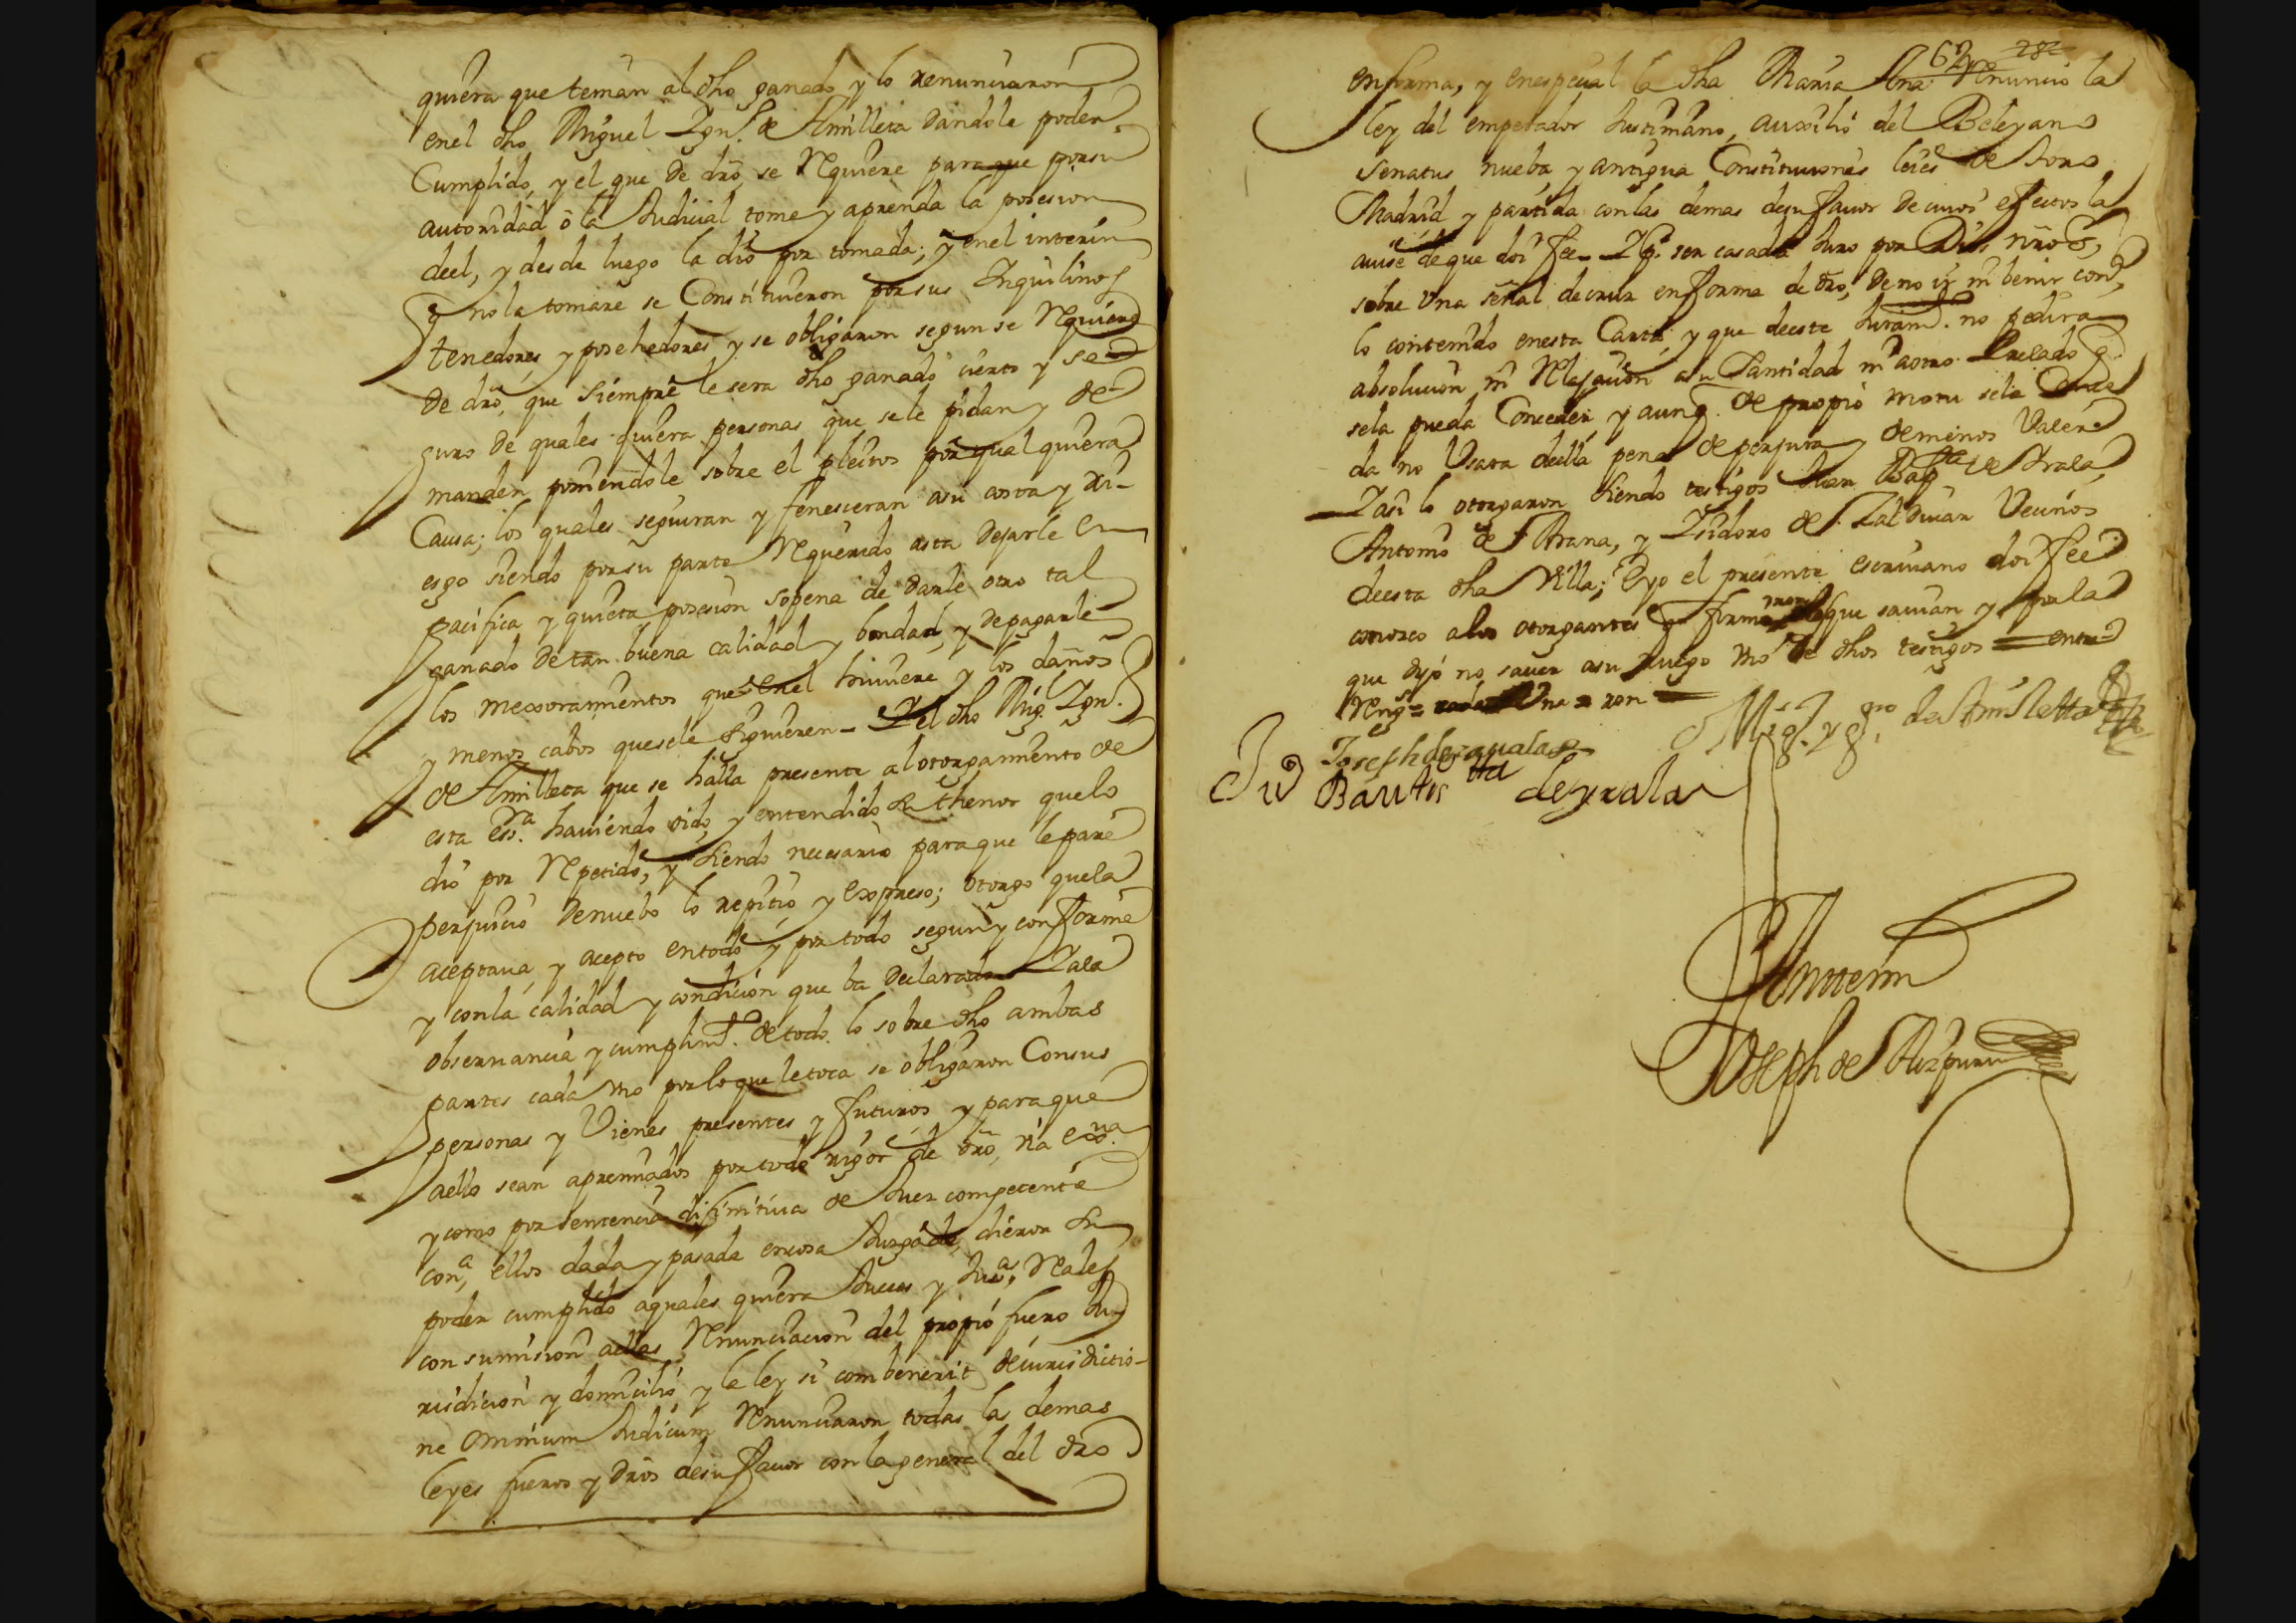 quiera que tenian al dho ganado y lo renunciaron
en el dho Miguel Ign.º de Amilleta dandole poder
Cumplido, y el que de dro se Requiere para que por su
autoridad ô la Judicial tome y aprenda la posesion
deel, y desde luego la dio por tomada; y en el interin
q no la tomare se Constituieron por sus Inquilinos
tenedores, y posehedores y se obligaron segun se Requiere
de dro, que siempre le sera dho ganado cierto y se
guro de quales quiera personas que se le pidan y de
manden poniendole sobre el pleitos por qual quiera
Causa; los quales seguiran y feneseran asu costa y rri-
esgo siendo por su parte Requerido asta dejarle en
pacifica y quieta posesion sopena de darle otro tal
ganado de tan buena calidad y bondad, y depagarle
los mexoramientos que en el hiuiere y los daños
y menos cabos que se le siguieren - Y el dho Mig.l Ign.º
de Amilleta que se halla presente al otorgamiento de
esta ess.ra hauiendo oido, y entendido su thenor que lo
dio por Repetido, y siendo necesario para que le pare
perjuicio de nuebo lo repitio y expreso; otorgo que la
aceptaua, y acepto entodo y por todo segun y conforme
y con la calidad y condicion que ba declarado Y a la
obseruancia y cumplim.to de todo lo sobre dho ambas
partes cada vno por lo que le toca se obligaron Con sus
personas y Vienes presentes y futuros y para que
aello sean apremiados por todo rigor de dro, via ex.va
y como por sentencia difinitiua de Juez competente
con.a ellos dada y pasada en cosa Juzgada, dieron su
poder cumplido a quales quiera Jueces y Jus.as Reales
con sumision a ellas Renunciacion del propio fuero Ju
risdicion y domicilio y la ley si combenerit de iurisdictio-
ne Omnium Judicum Renunciaron todas las demas
leyes fueros y dros de su fauor con la general del dro
62 282
en forma, y en espeçial la dha Maria Ana Renuncio la
ley del emperador Justiniano, auxilio del Beleyano
senatus nueba y antigua Constituciones leies de Toro
Madrid y partida con las demas de su fauor de cuios efectos la
auise de que doi fee - Y p.r ser casada Juro por Dios nro s.r
sobre Vna señal de cruz en forma de dro, de no ir ni benir con.a
lo contenido en esta Carta y que de este Juram.to no pedira
absolucion ni Relajacion asu Santidad ni a otro Prelado q.
se la pueda Conceder y aunq. de propio motu se le Conce
da no Vsara della pena de perjura y de menos Valer
Y asi lo otorgaron siendo testigos Juan Bap.ta de Yrala,
Antonio de Arana, y Ysidoro de Zalduuar Vecinos
de esta dha Villa; E yo el presente escriuano doi fee
conozco a los otorgantes q firmaron los que sauian y por la
que dijo no sauer asu ruego vno de dhos testigos = entre
Reng.s = = na = ron =
Mig.l Yg.no de Amilletta
Joseph de eguala
Ju Bautis tta de yrala
Antte mi
Joseph de Aizpuru